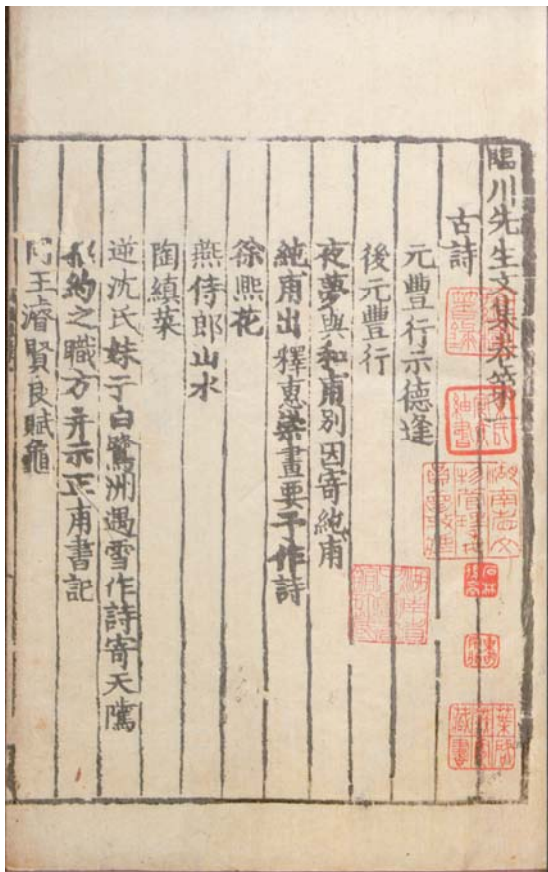 臨川先生文集卷第一
古詩
元豐行示德逢
後元豐行
夜夢與和甫別因寄純甫
純甫出釋惠崇畫要予作詩
徐熙花
燕侍郎山水
陶縝菜
逆沈氏妹于白鷺洲遇雪作詩寄天隲
約之職方并示正甫書記
同王濬賢良賦龜